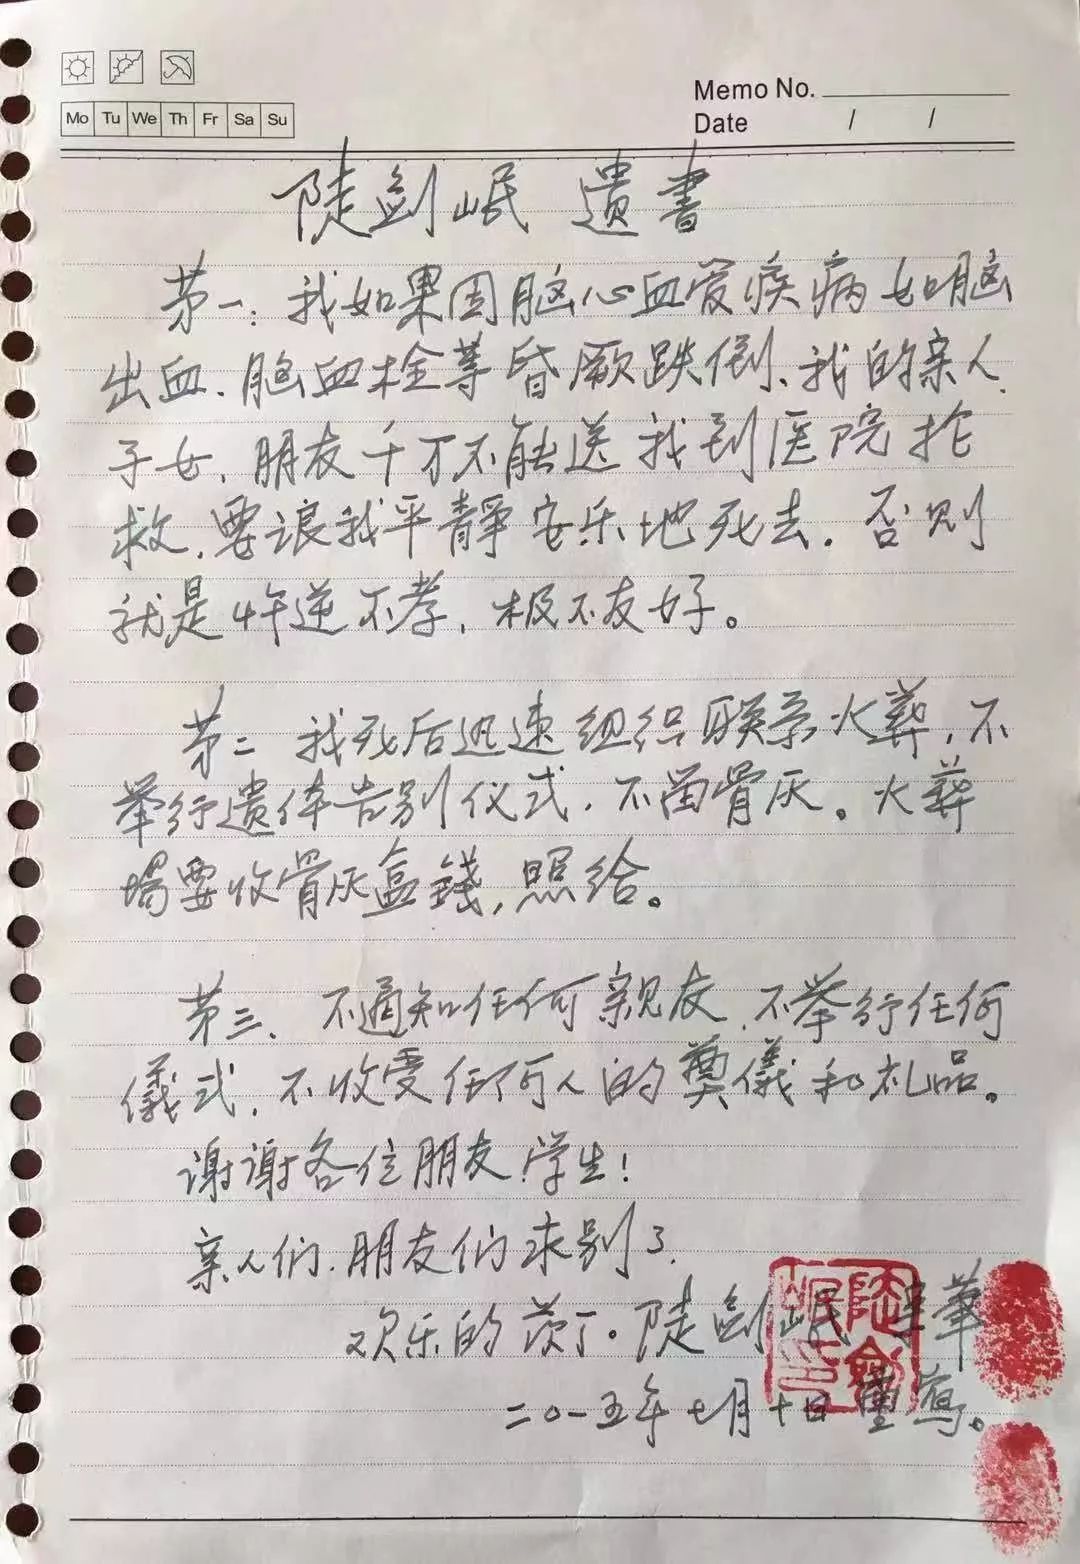 Memo No.
Mo Tu We Th Fr Sa Su
Date / /
陡剑岷 遺書
第一：我如果因脑心血管疾病如脑
出血、脑血栓等昏厥跌倒、我的亲人、
子女、朋友千万不能送我到医院抢
救、要让我平静安乐地死去。否则
就是忤逆不孝、极不友好。
第二 我死后迅速组织联系火葬，不
举行遗体告别仪式，不留骨灰。火葬
場要收骨灰盒錢，照给。
第三、不通知任何亲友、不举行任何
儀式，不收受任何人的奠儀和礼品。
谢谢各位朋友、学生！
亲人们、朋友们永别了
欢乐的 陡剑岷
二〇一五年七月十日重寫。
陡剑岷印